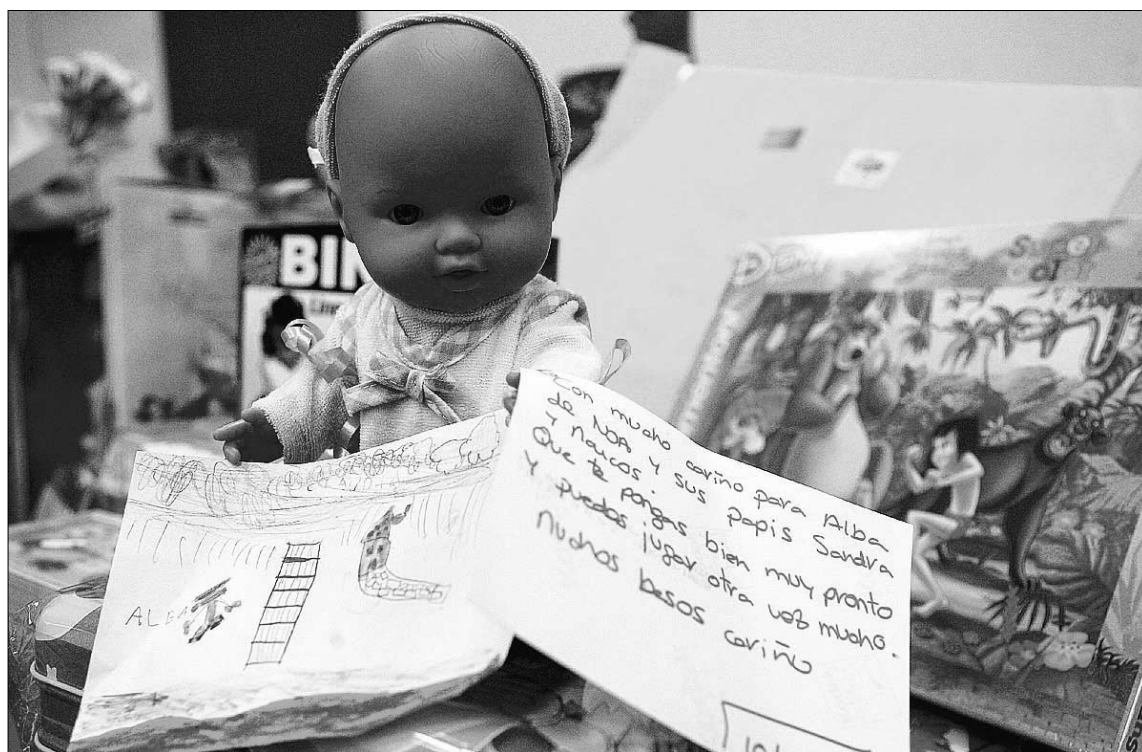 BIN
Con mucho cariño para Alba
de NOA y sus papis Sandra
Y naucos.
Que te pongas bien muy pronto
Y puedas jugar otra vez mucho.
Muchos besos cariño
ALBA